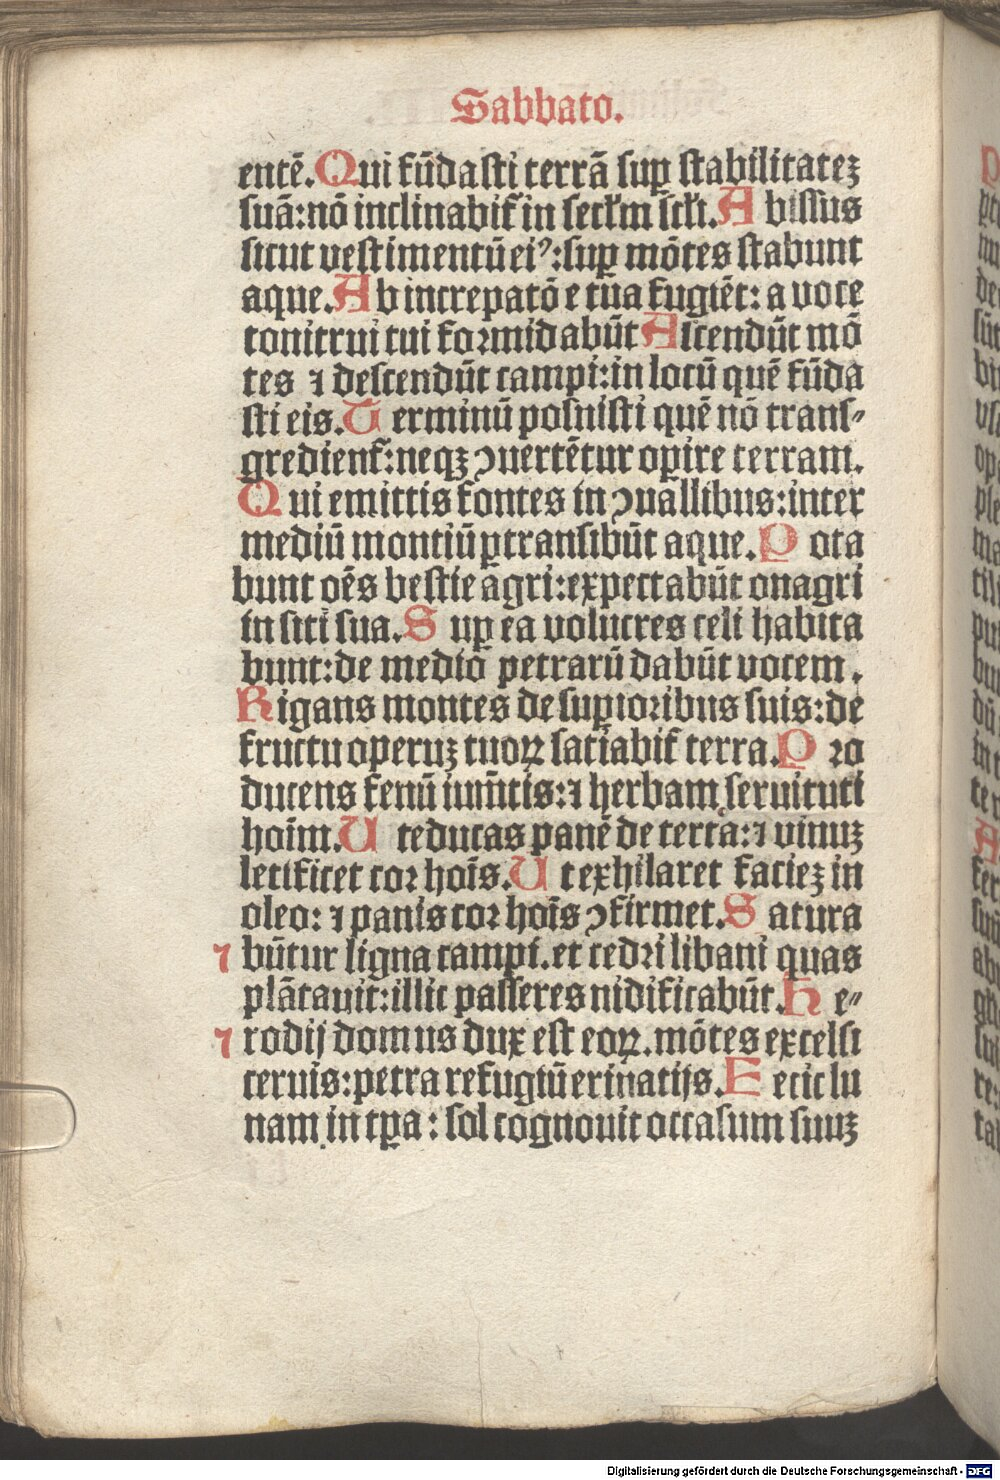 Sabbato.
entē. Qui fūdasti terrā suꝑ stabilitateꝫ
suā: nō inclinabit᷑ in secl̄m scl̄i. Abissus
sicut vestimentū eiꝰ: suꝑ mōtes stabunt
aque. Ab increpatōe tua fugiēt: a voce
tonitrui tui formidabūt Ascendūt mō
tes ⁊ descendūt campi: in locū quē fūda
sti eis. Terminū posuisti quē nō trans⸗
gredient᷑: neqꝫ ꝯuertētur oꝑire terram.
Qui emittis fontes in ꝯuallibus: inter
mediū montiū ꝑtransibūt aque. Pota
bunt oēs bestie agri: expectabūt onagri
in siti sua. Suꝑ ea volucres celi habita
bunt: de medio petrarū dabūt vocem.
Rigans montes de suꝑioribus suis: de
fructu operuꝫ tuoꝝ satiabit᷑ terra. Pro
ducens fenū iumētis: ⁊ herbam seruituti
hoīm. Ut educas panē de terra: ⁊ vinuꝫ
letificet cor hoīs. Ut exhilaret facieꝫ in
oleo: ⁊ panis cor hoīs ꝯfirmet. Satura
⁊ būtur ligna campi. et cedri libani quas
plātauit: illic passeres nidificabūt. He⸗
⁊ rodij domus dux est eoꝝ. mōtes excelsi
ceruis: petra refugiū erinatijs. Fecit lu
nam in tꝑa: sol cognouit occasum suuꝫ
Digitalisierung gefördert durch die Deutsche Forschungsgemeinschaft - DFG